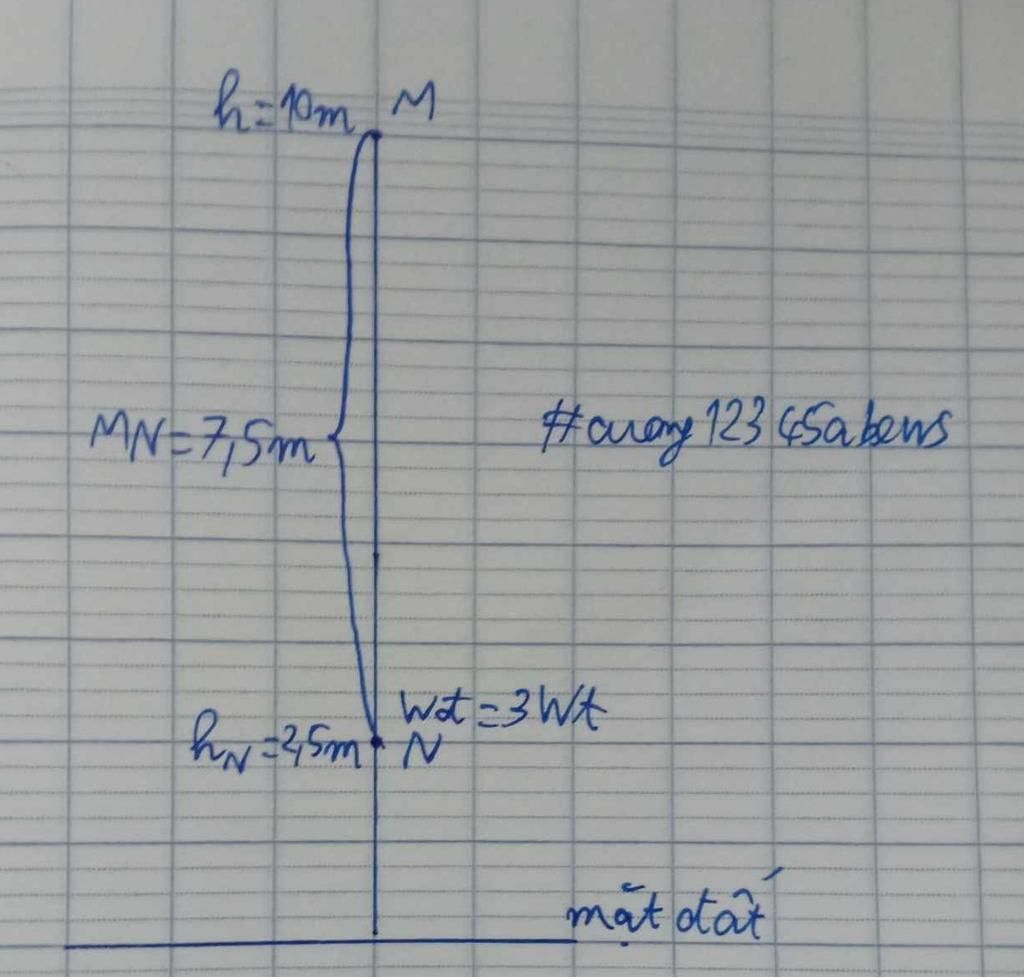 h=10m M
MN=7,5m
#cuong12345abcws
Wđt=3Wt
hN=2,5m N
mặt đất